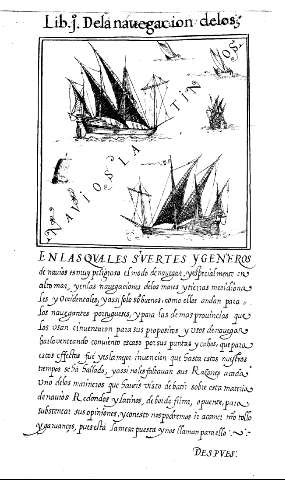 Lib. j. De la navegacion de los
NAVIOS LATINOS
EN LAS QVALES SVERTES Y GENEROS
de navios es muy peligroso el modo de navegar, y especialmente en
alto mar, y en las navegaciones de los mares y tierras meridiona
les y Occidentales, y assi solo sob buenos como ellos andan para
los navegantes portugueses, y para las demas provincias que
los usan e inventaron para sus propositos y usos de navegar
bastoventeando con viento escaso por sus puntas y cabos que para
estos effectos fue y es la mejor invencion que hasta estos nuestros
tiempos se ha hallado, y assi no les faltavan sus Razones a cada
uno de los marineros que haveis visto debatir sobre esta materia
de navios Redondos y latinos, de borde final, o puente, para
substentar sus opiniones, y con esto nos podremos ir a comer mio tollo
y garvanços, pues esta la mesa puesta y nos llaman para ello
DESPVES